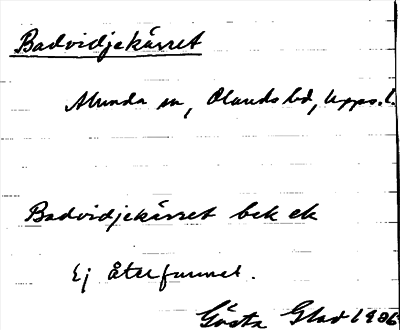 Badvidjekärret
Alunda sn, Olands hd, Upps.l.
Badvidjekärret bek ek
Ej återfunnet.
Gösta Glad 1986